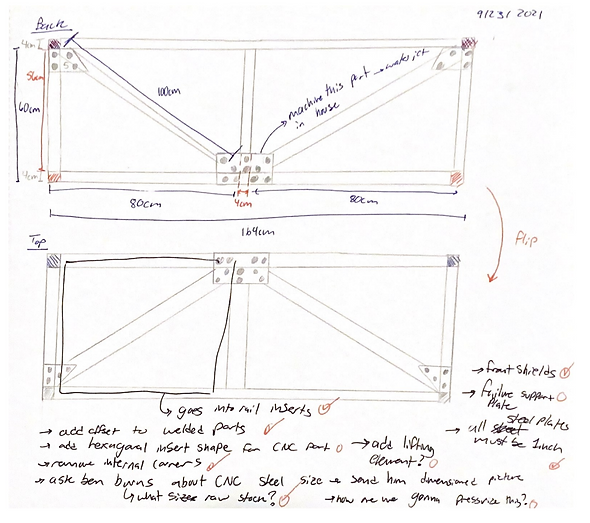 9/23/2021
Back
4cm
56cm
60cm
4cm
100cm
machine this part → waterjet
in house
80cm
4cm
80cm
164cm
flip
Top
→ goes into rail inserts
→ add offset to welded parts
→ add hexagonal insert shape for CNC part
→ remove internal corners
→ ask ben burns about CNC steel size → send him dimensioned picture
↳ what sizes raw stock?
→ add lifting
element?
→ how are we gonna pressurize this?
→ front shields
→ failure support
plate
→ all steel plates
must be 1 inch